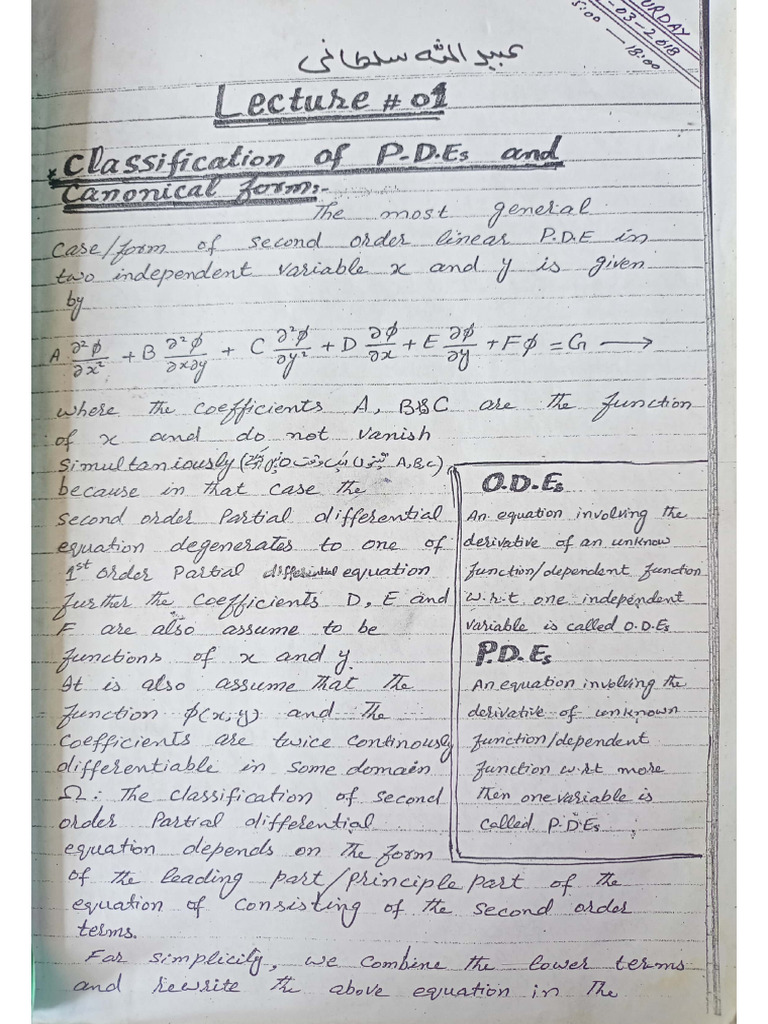 URDAY
-03-2018
5:00 — 18:00
عبید اللہ سلطانی
Lecture # 01
* Classification of P.D.Es and
Canonical form:-
The most general
Case/form of second order linear P.D.E in
two independent variable x and y is given
by
A ∂²φ/∂x² + B ∂²φ/∂x∂y + C ∂²φ/∂y² + D ∂φ/∂x + E ∂φ/∂y + Fφ = G ⟶
where the coefficients A, B&C are the function
of x and do not vanish
simultaniously (A,B,C)
because in that case the
second order Partial differential
equation degenerates to one of
1st order Partial differential equation
further the coefficients D, E and
F are also assume to be
functions of x and y.
It is also assume that the
function φ(x,y) and the
coefficients are twice continously
differentiable in some domain
Ω: The classification of second
order Partial differential
equation depends on the form
of the leading part/principle part of the
equation of consisting of the second order
terms.
For simplicity, we combine the lower terms
and rewrite the above equation in the
O.D.Es
An equation involving the
derivative of an unknow
function/dependent function
w.r.t one independent
variable is called O.D.Es
P.D.Es
An equation involving the
derivative of unknown
function/dependent
function w.r.t more
Then one variable is
called P.D.Es